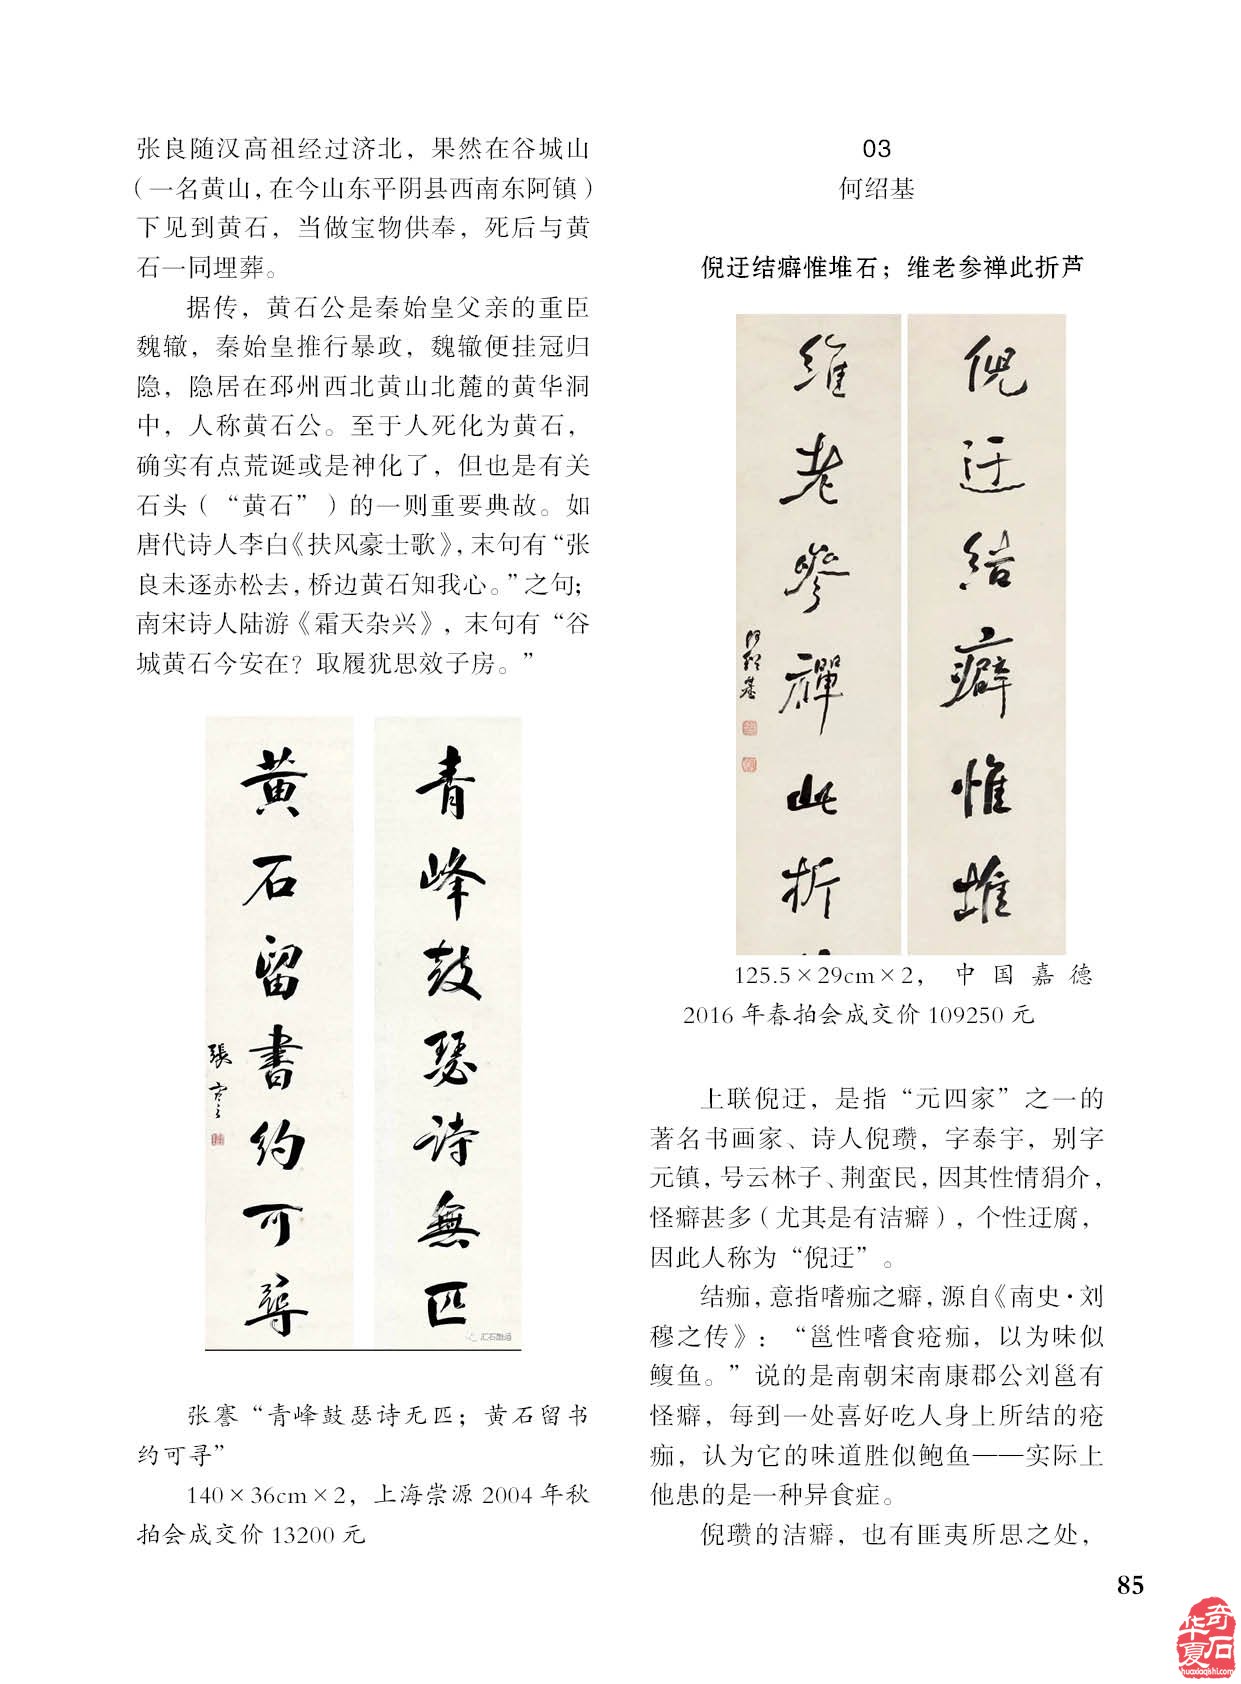 张良随汉高祖经过济北，果然在谷城山
（一名黄山，在今山东平阴县西南东阿镇）
下见到黄石，当做宝物供奉，死后与黄
石一同埋葬。
据传，黄石公是秦始皇父亲的重臣
魏辙，秦始皇推行暴政，魏辙便挂冠归
隐，隐居在邳州西北黄山北麓的黄华洞
中，人称黄石公。至于人死化为黄石，
确实有点荒诞或是神化了，但也是有关
石头（“黄石”）的一则重要典故。如
唐代诗人李白《扶风豪士歌》，末句有“张
良未逐赤松去，桥边黄石知我心。”之句；
南宋诗人陆游《霜天杂兴》，末句有“谷
城黄石今安在？取履犹思效子房。”
青峰鼓瑟诗無匹
黄石留書约可尋
張謇
汇石融通
张謇“青峰鼓瑟诗无匹；黄石留书
约可寻”
140×36cm×2，上海崇源 2004 年秋
拍会成交价 13200 元
03
何绍基
倪迂结癖惟堆石；维老参禅此折芦
倪迂结癖惟堆
維老參禪此折
何紹基
125.5×29cm×2，中国嘉德
2016 年春拍会成交价 109250 元
上联倪迂，是指“元四家”之一的
著名书画家、诗人倪瓒，字泰宇，别字
元镇，号云林子、荆蛮民，因其性情狷介，
怪癖甚多（尤其是有洁癖），个性迂腐，
因此人称为“倪迂”。
结痂，意指嗜痂之癖，源自《南史·刘
穆之传》：“邕性嗜食疮痂，以为味似
鳆鱼。”说的是南朝宋南康郡公刘邕有
怪癖，每到一处喜好吃人身上所结的疮
痂，认为它的味道胜似鲍鱼——实际上
他患的是一种异食症。
倪瓒的洁癖，也有匪夷所思之处，
85
华夏奇石
huaxiaqishi.com